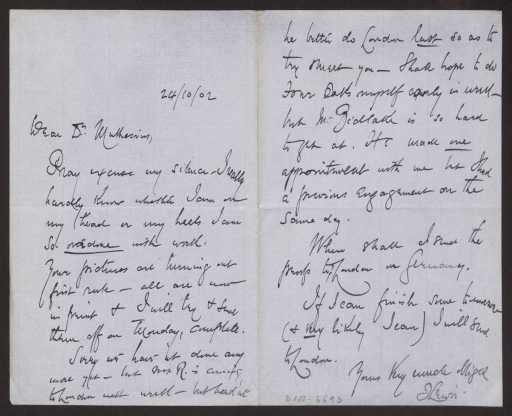 24/10/02
Dear Dr. Matheson,
Pray excuse my silence. I really
hardly know whether I am on
my head or my heels I am
so overdone with work.
Your pictures are turning out
first rate – all are now
in print & I will try & send
them off on Monday, complete.
Sorry we have not done any
more yet – but Mrs R. is coming
to London next week – but had
he better do London last so as to
try & meet you – Shall hope to do
Four Oaks myself early in week –
but Mr is so hard
to get at. He made one
appointment with me but I had
a previous engagement on the
same day.
When shall I send the
proofs to London or Germany.
If I can finish some tomorrow
(& very likely I can) I will send
to London.
Yours very much obliged